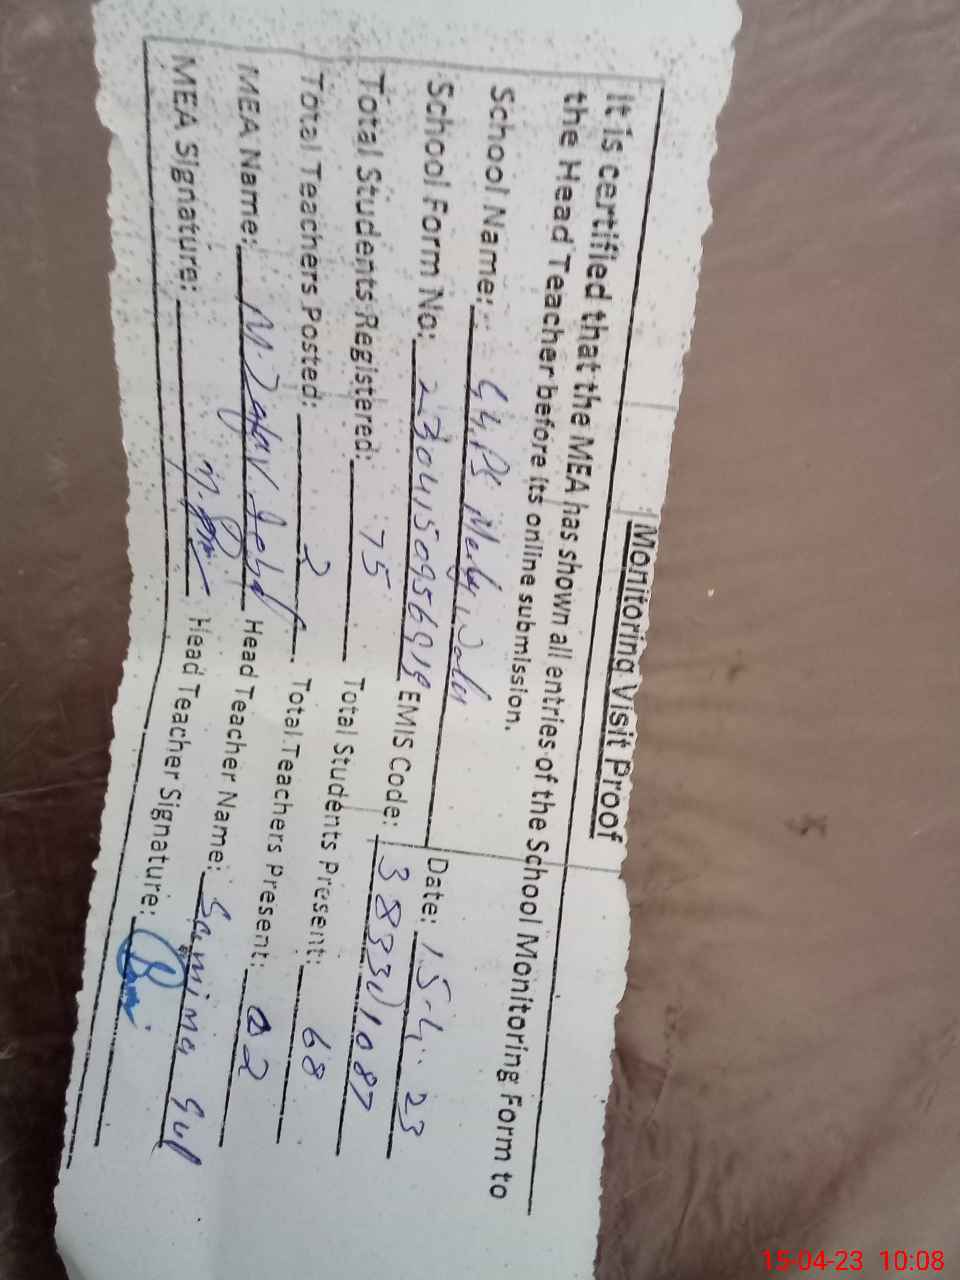 Monitoring Visit Proof
It is certified that the MEA has shown all entries of the School Monitoring Form to
the Head Teacher before its online submission.
School Name: Date: 15-4-23
School Form No: EMIS Code:
Total Students Registered: 75 Total Students Present: 68
Total Teachers Posted: 2 Total Teachers Present: 02
MEA Name: M. Zafar Head Teacher Name: Samina Gul
MEA Signature: Head Teacher Signature:
15-04-23 10:08